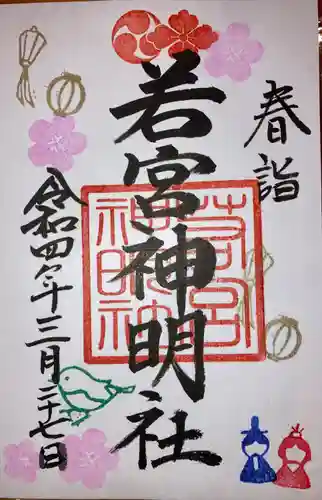 春詣
若宮神明社
若宮
神明社
令和四年三月二十七日